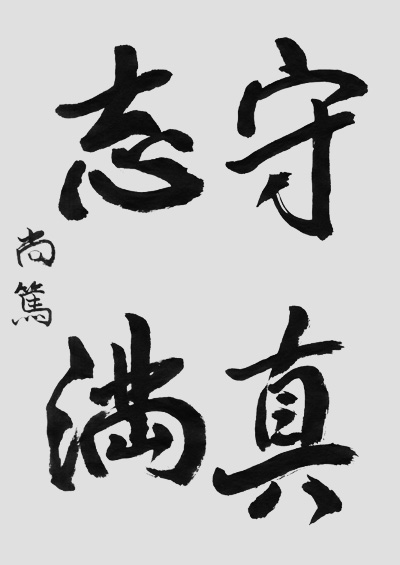 守真
志満
尚篤